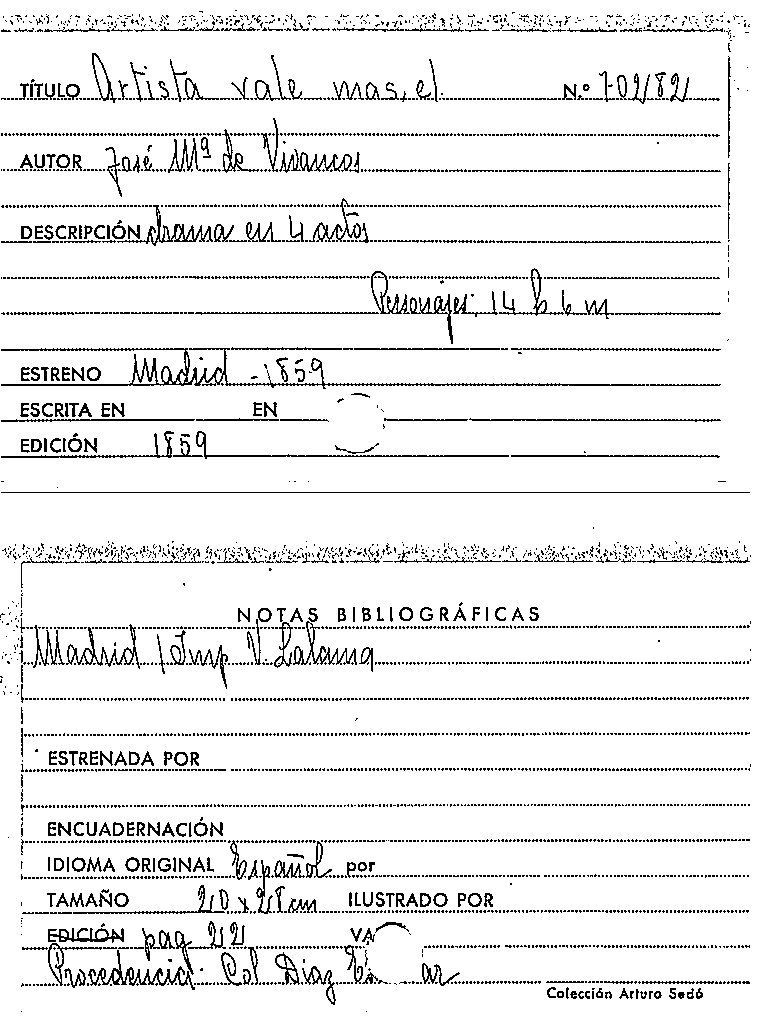 TÍTULO Artista vale mas, el. N.º 702/82
AUTOR José Mª de Vivancos
DESCRIPCIÓN drama en 4 actos
Personajes: 14 h 6 m
ESTRENO Madrid - 1859
ESCRITA EN EN
EDICIÓN 1859
NOTAS BIBLIOGRÁFICAS
Madrid / Imp V. Lalama
ESTRENADA POR
ENCUADERNACIÓN
IDIOMA ORIGINAL Español por
TAMAÑO 20 x 28 cm ILUSTRADO POR
EDICIÓN pag 22 VA
Procedencia: Col Diaz
Colección Arturo Sedó